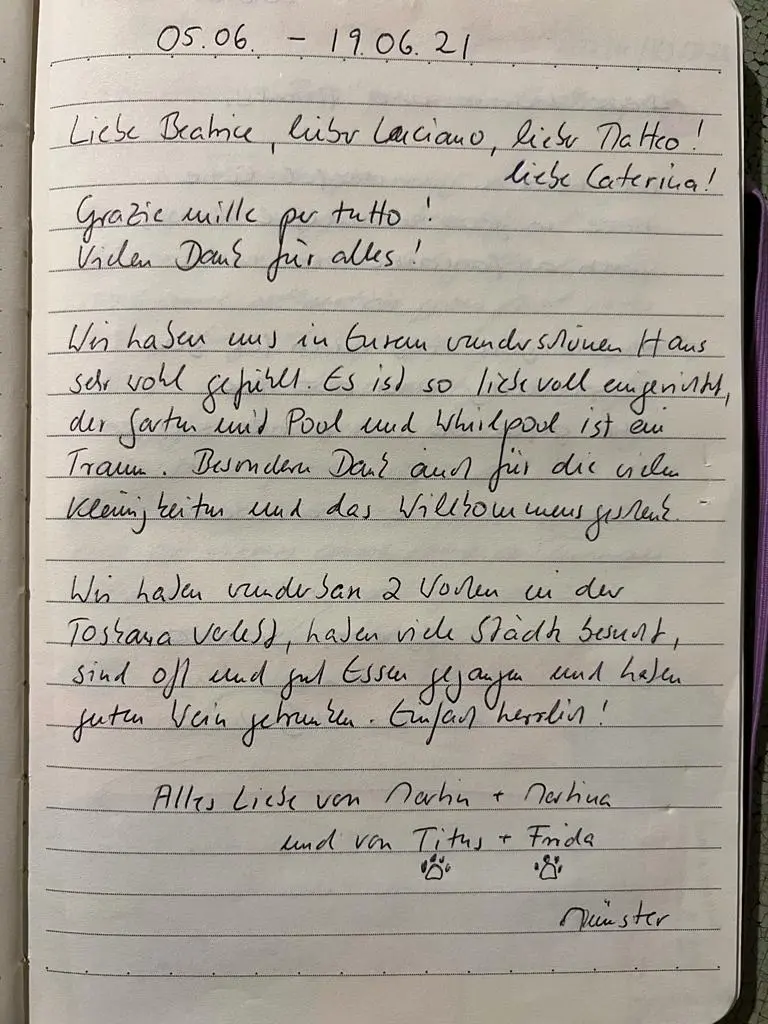 05.06. – 19.06.21
Liebe Beatrice, lieber Luciano, lieber Matteo!
liebe Caterina!
Grazie mille per tutto!
Vielen Dank für alles!
Wir haben uns in Eurem wunderschönen Haus
sehr wohl gefühlt. Es ist so liebevoll eingerichtet,
der Garten mit Pool und Whirlpool ist ein
Traum. Besonderen Dank auch für die vielen
Kleinigkeiten und das Willkommensgeschenk.
Wir haben wunderbare 2 Wochen in der
Toskana verlebt, haben viele Städte besucht,
sind oft und gut Essen gegangen und haben
guten Wein getrunken. Einfach herrlich!
Alles Liebe von Martin + Martina
und von Titus + Frida
Münster